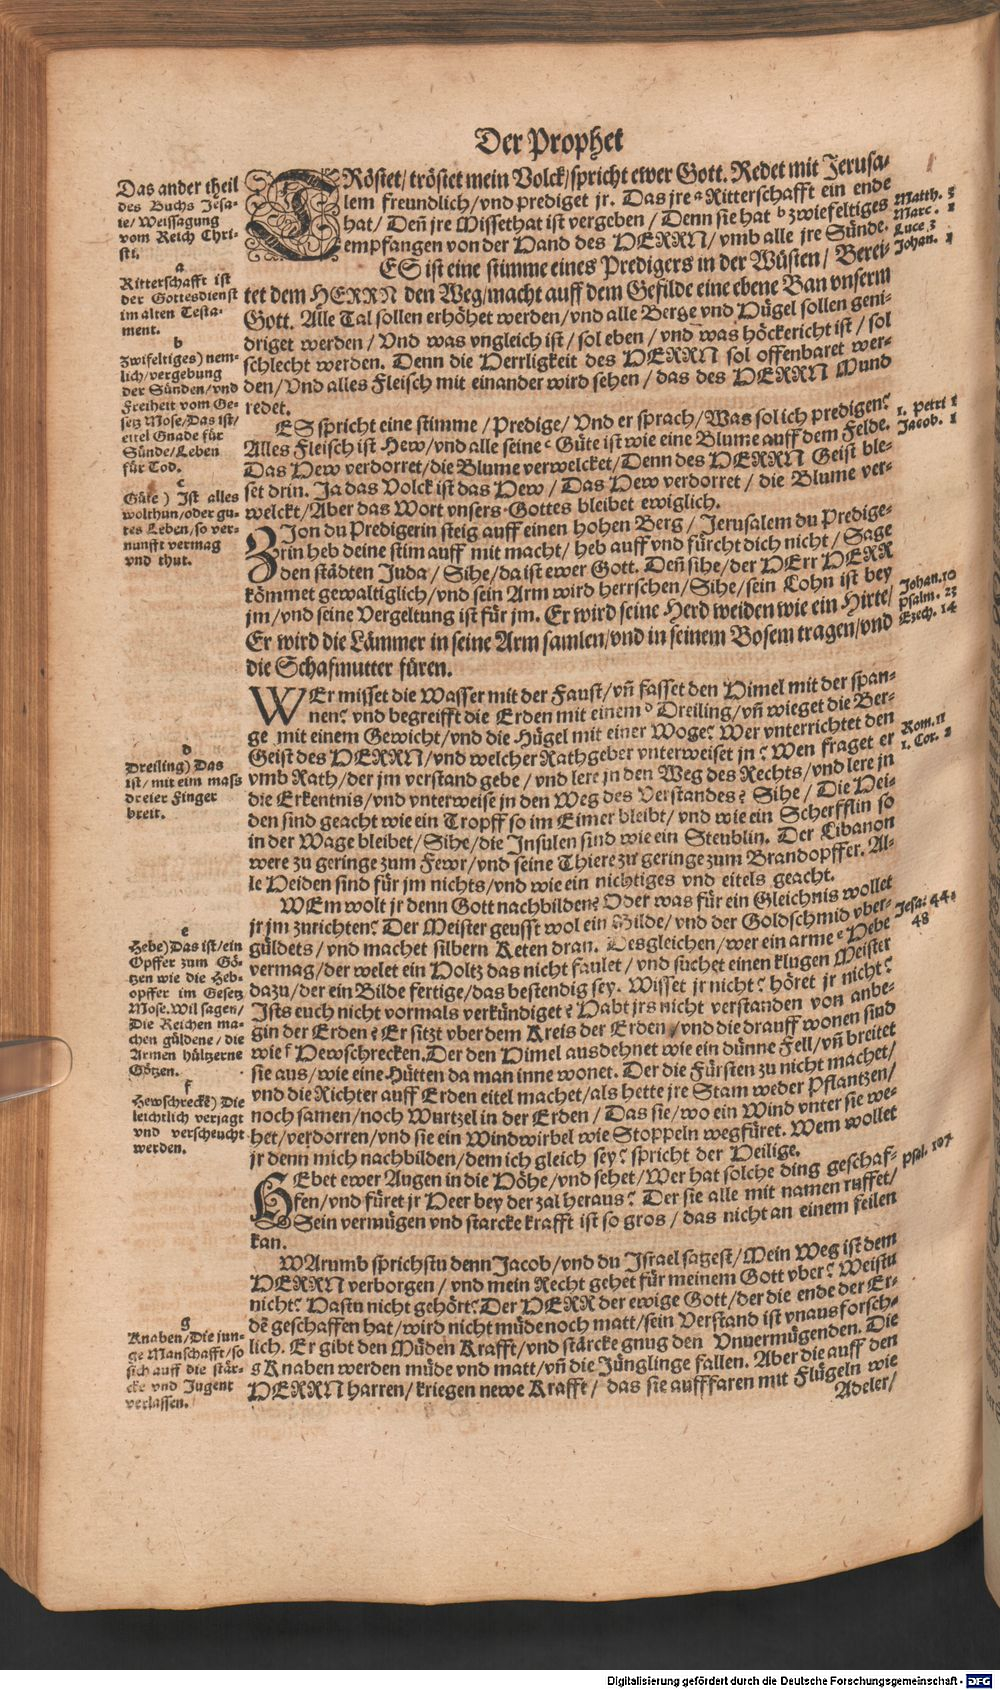 Der Prophet
TRöstet/ tröstet mein Volck/ spricht ewer Gott. Redet mit Jerusa-
lem freundlich/ vnd prediget jr. Das jre a Ritterschafft ein ende
hat/ Deñ jre Missethat ist vergeben/ Denn sie hat b zwiefeltiges
empfangen von der Hand des HERRN/ vmb alle jre Sünde.
ES ist eine stimme eines Predigers in der Wüsten/ Berei-
tet dem HERRN den Weg/ macht auff dem Gefilde eine ebene Ban vnserm
Gott. Alle Tal sollen erhöhet werden/ vnd alle Berge vnd Hügel sollen geni-
driget werden/ Vnd was vngleich ist/ sol eben/ vnd was höckericht ist/ sol
schlecht werden. Denn die Herrligkeit des HERRN sol offenbaret wer-
den/ Vnd alles Fleisch mit einander wird sehen/ das des HERRN Mund
redet.
ES spricht eine stimme/ Predige/ Vnd er sprach/ Was sol ich predigen?
Alles Fleisch ist Hew/ vnd alle seine c Güte ist wie eine Blume auff dem Felde.
Das Hew verdorret/ die Blume verwelcket/ Denn des HERRN Geist ble-
set drin. Ja das Volck ist das Hew/ Das Hew verdorret/ die Blume ver-
welckt/ Aber das Wort vnsers Gottes bleibet ewiglich.
ZJon du Predigerin steig auff einen hohen Berg/ Jerusalem du Predige-
rin heb deine stim auff mit macht/ heb auff vnd fürcht dich nicht/ Sage
den städten Juda/ Sihe/ da ist ewer Gott. Deñ sihe/ der HErr HERR
kömmet gewaltiglich/ vnd sein Arm wird herrschen/ Sihe/ sein Lohn ist bey
jm/ vnd seine Vergeltung ist für jm. Er wird seine Herd weiden wie ein Hirte/
Er wird die Lämmer in seine Arm samlen/ vnd in seinem Bosem tragen/ vnd
die Schafmutter füren.
WEr misset die Wasser mit der Faust/ vñ fasset den Himel mit der span-
nen? vnd begreifft die Erden mit einem d Dreiling/ vñ wieget die Ber-
ge mit einem Gewicht/ vnd die Hügel mit einer Woge? Wer vnterrichtet den
Geist des HERRN/ vnd welcher Rathgeber vnterweiset jn? Wen fraget er
vmb Rath/ der jm verstand gebe/ vnd lere jn den Weg des Rechts/ vnd lere jn
die Erkentnis/ vnd vnterweise jn den Weg des Verstandes? Sihe/ Die Hei-
den sind geacht wie ein Tropff so im Eimer bleibt/ vnd wie ein Scherfflin so
in der Wage bleibet/ Sihe/ die Insulen sind wie ein Steublin. Der Libanon
were zu geringe zum Fewr/ vnd seine Thiere zu geringe zum Brandopffer. Al-
le Heiden sind für jm nichts/ vnd wie ein nichtiges vnd eitels geacht.
WEm wolt jr denn Gott nachbilden? Oder was für ein Gleichnis wollet
jr jm zurichten? Der Meister geusst wol ein Bilde/ vnd der Goldschmid vber-
güldets/ vnd machet silbern Keten dran. Desgleichen/ wer ein arme e Hebe
vermag/ der welet ein Holtz das nicht faulet/ vnd suchet einen klugen Meister
dazu/ der ein Bilde fertige/ das bestendig sey. Wisset jr nicht? höret jr nicht?
Ists euch nicht vormals verkündiget? Habt jrs nicht verstanden von anbe-
gin der Erden? Er sitzt vber dem Kreis der Erden/ vnd die drauff wonen sind
wie f Hewschrecken. Der den Himel ausdehnet wie ein dünne Fell/ vñ breitet
sie aus/ wie eine Hütten da man inne wonet. Der die Fürsten zu nicht machet/
vnd die Richter auff Erden eitel machet/ als hette jre Stam weder Pflantzen/
noch samen/ noch Wurtzel in der Erden/ Das sie/ wo ein Wind vnter sie we-
het/ verdorren/ vnd sie ein Windwirbel wie Stoppeln wegfüret. Wem wollet
jr denn mich nachbilden/ dem ich gleich sey? spricht der Heilige.
HEbet ewer Augen in die Höhe/ vnd sehet/ Wer hat solche ding geschaf-
fen/ vnd füret jr Heer bey der zal heraus? Der sie alle mit namen ruffet/
Sein vermügen vnd starcke krafft ist so gros/ das nicht an einem feilen
kan.
WArumb sprichstu denn Jacob/ vnd du Israel sagest/ Mein Weg ist dem
HERRN verborgen/ vnd mein Recht gehet für meinem Gott vber? Weistu
nicht? Hastu nicht gehört? Der HERR der ewige Gott/ der die ende der Er-
dē geschaffen hat/ wird nicht müde noch matt/ sein Verstand ist vnausforsch-
lich. Er gibt den Müden Krafft/ vnd stärcke gnug den Vnuermügenden. Die
g Knaben werden müde vnd matt/ vñ die Jünglinge fallen. Aber die auff den
HERRN harren/ kriegen newe Krafft/ das sie aufffaren mit Flügeln wie
Adeler/
Das ander theil
des Buchs Jesa-
ie/ Weissagung
vom Reich Chri-
sti.
a
Ritterschafft ist
der Gottesdienst
im alten Testa-
ment.
b
Zwifeltiges) nem-
lich/ vergebung
der Sünden/ vnd
Freiheit vom Ge-
setz Mose/ Das ist/
eitel Gnade für
Sünde/ Leben
für Tod.
c
Güte) Ist alles
wolthun/ oder gu-
tes Leben/ so ver-
nunfft vermag
vnd thut.
d
Dreiling) Das
ist/ mit eim mass
dreier Finger
breit.
e
Hebe) Das ist/ ein
Opffer zum Gö-
tzen wie die Heb-
opffer im Gesetz
Mose. Wil sagen/
Die Reichen ma-
chen güldene/ die
Armen hültzerne
Götzen.
f
Hewschreckē) Die
leichtlich verjagt
vnd verscheucht
werden.
g
Knaben/ Die jun-
ge Manschafft/ so
sich auff die stär-
cke vnd Jugent
verlassen.
Matth. 3
Marc. 1
Luce 3
Johan. 1
1. Petri 1
Jacob. 1
Johan. 10
Psalm. 23
Ezech. 14
Rom. 11
1. Cor. 2
Jesa. 44.
48
Psal. 107
Digitalisierung gefördert durch die Deutsche Forschungsgemeinschaft - DFG